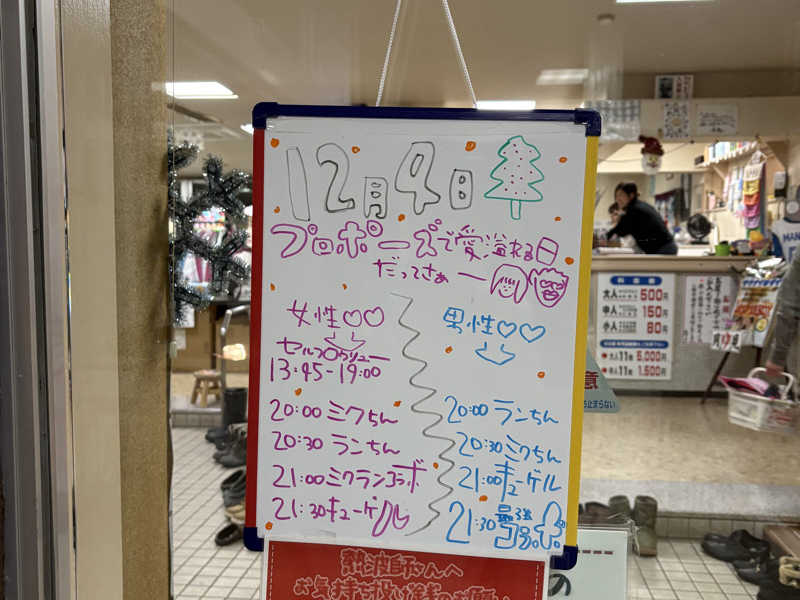 12月4日
プロポーズで愛溢れる日
だってさぁー
女性♡♡
セルフロウリュー
13:45-19:00
20:00 ミクちん
20:30 ランちん
21:00 ミクランコラボ
21:30 キューゲル
男性♡♡
20:00 ランちん
20:30 ミクちん
21:00 キューゲル
21:30 最強
熱波師さんへ
お気持ち投げ銭のお願い
の
料金表
大人 500円
中人 150円
小人 80円
大人11枚 5,000円
11枚 1,500円